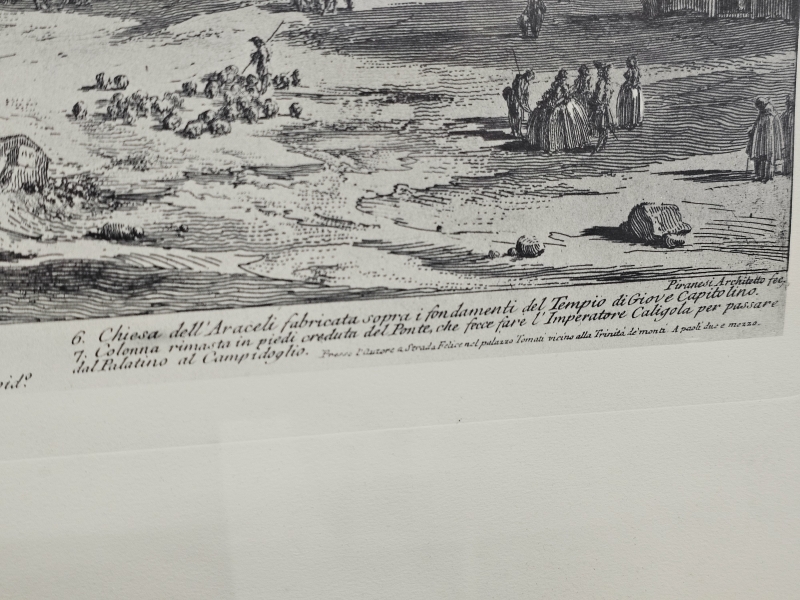 Piranesi Architetto fec.
6. Chiesa dell'Araceli fabricata sopra i fondamenti del Tempio di Giove Capitolino.
7. Colonna rimasta in piedi creduta del Ponte, che fece fare l'Imperatore Caligola per passare
dal Palatino al Campidoglio. Presso l'Autore a Strada Felice nel palazzo Tomati vicino alla Trinità de' monti. A paoli due e mezzo.